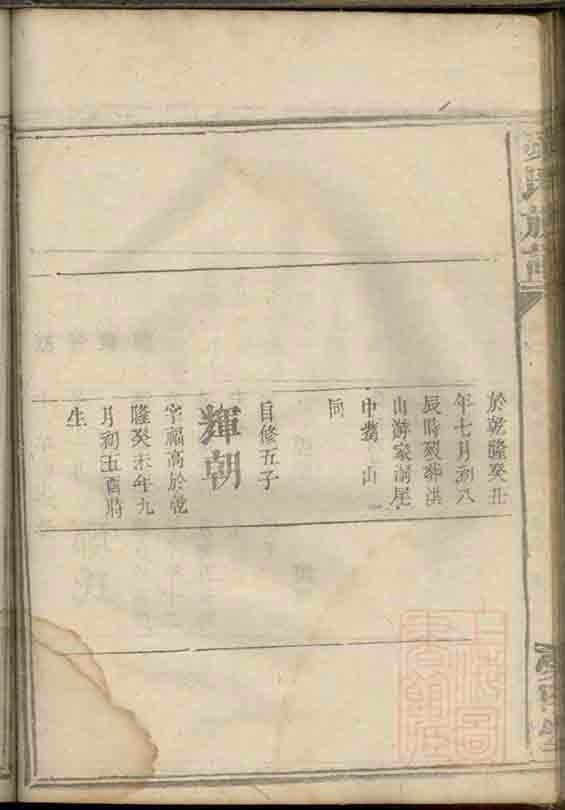 於乾隆癸丑
年七月初八
辰時歿葬洪
山游家湖尾
中嵩山
同
自修五子
輝朝
字福高於乾
隆癸未年九
月初五酉時
生
上海圖書館藏